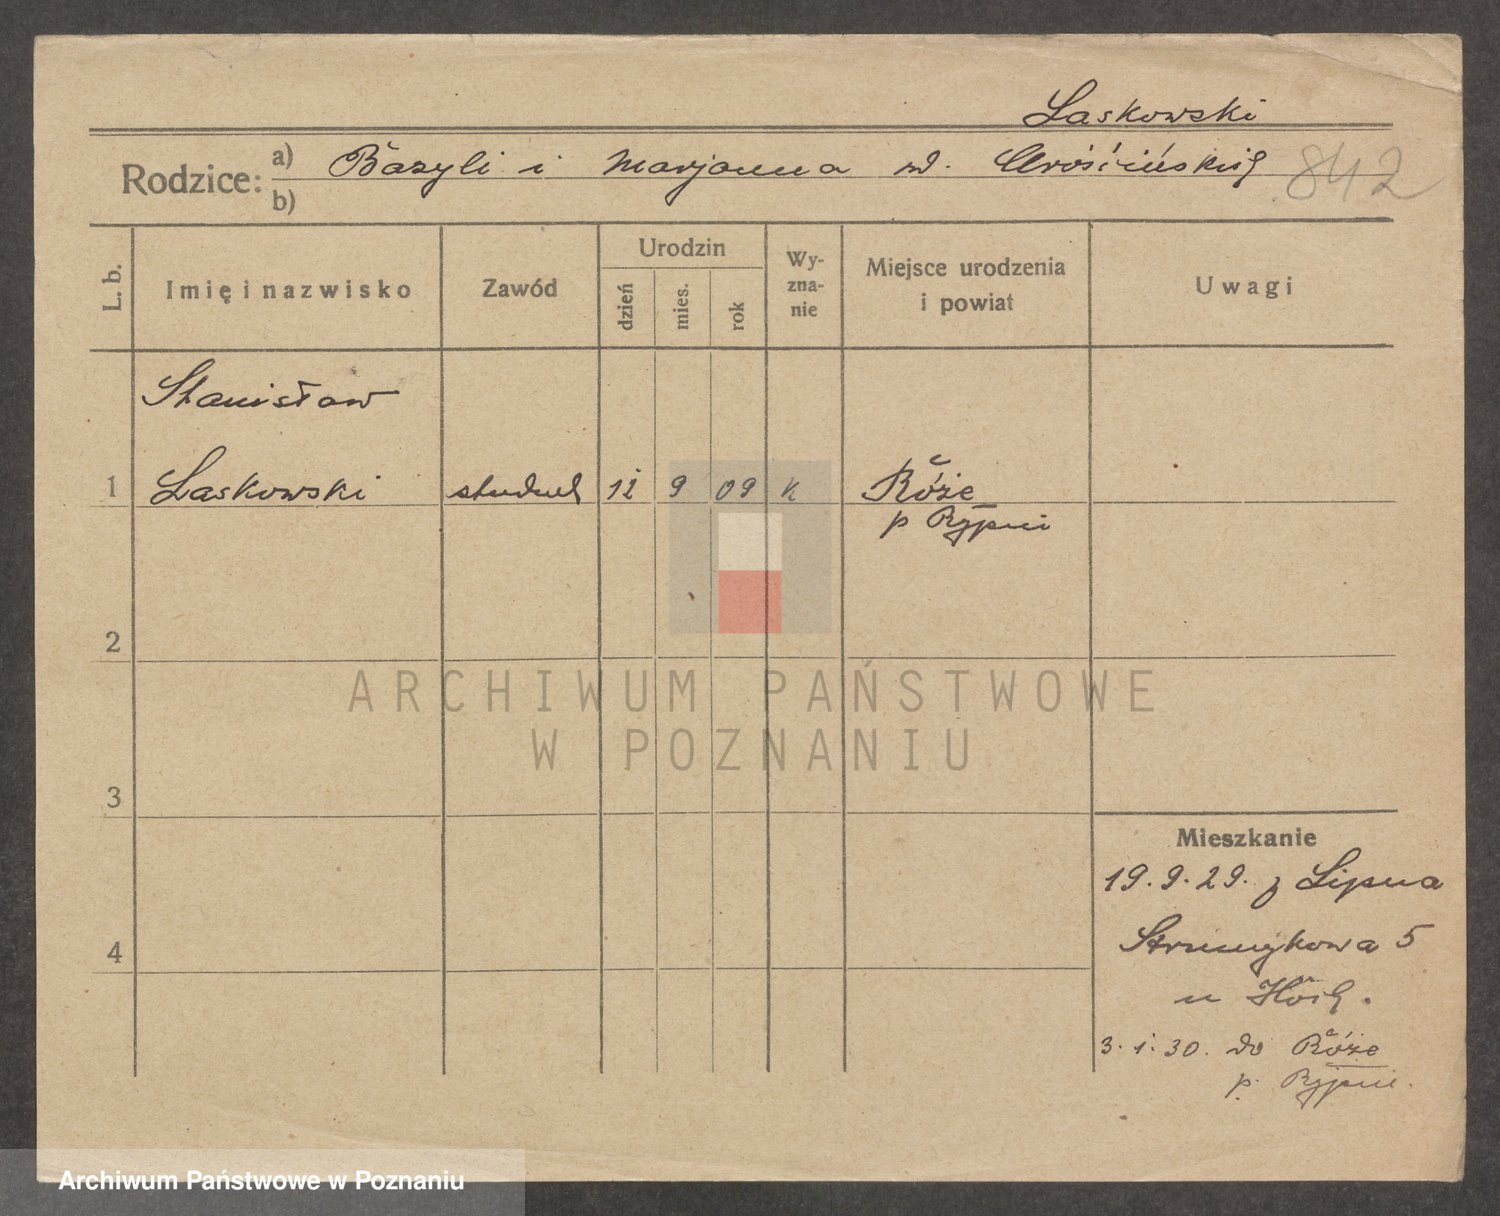 Laskowski
Rodzice: a) Bazyli i Marjanna 842
b)
L. b. Imię i nazwisko Zawód Urodzin dzień mies. rok Wy-zna-nie Miejsce urodzenia i powiat Uwagi
Stanisław
1 Laskowski student 12 9 09 k Róże
p Rypin
2
ARCHIWUM PAŃSTWOWE
W POZNANIU
3
Mieszkanie
19.9.29. z Lipna
4 Strumykowa 5
u
3.1.30. do Róże
p. Rypin
Archiwum Państwowe w Poznaniu